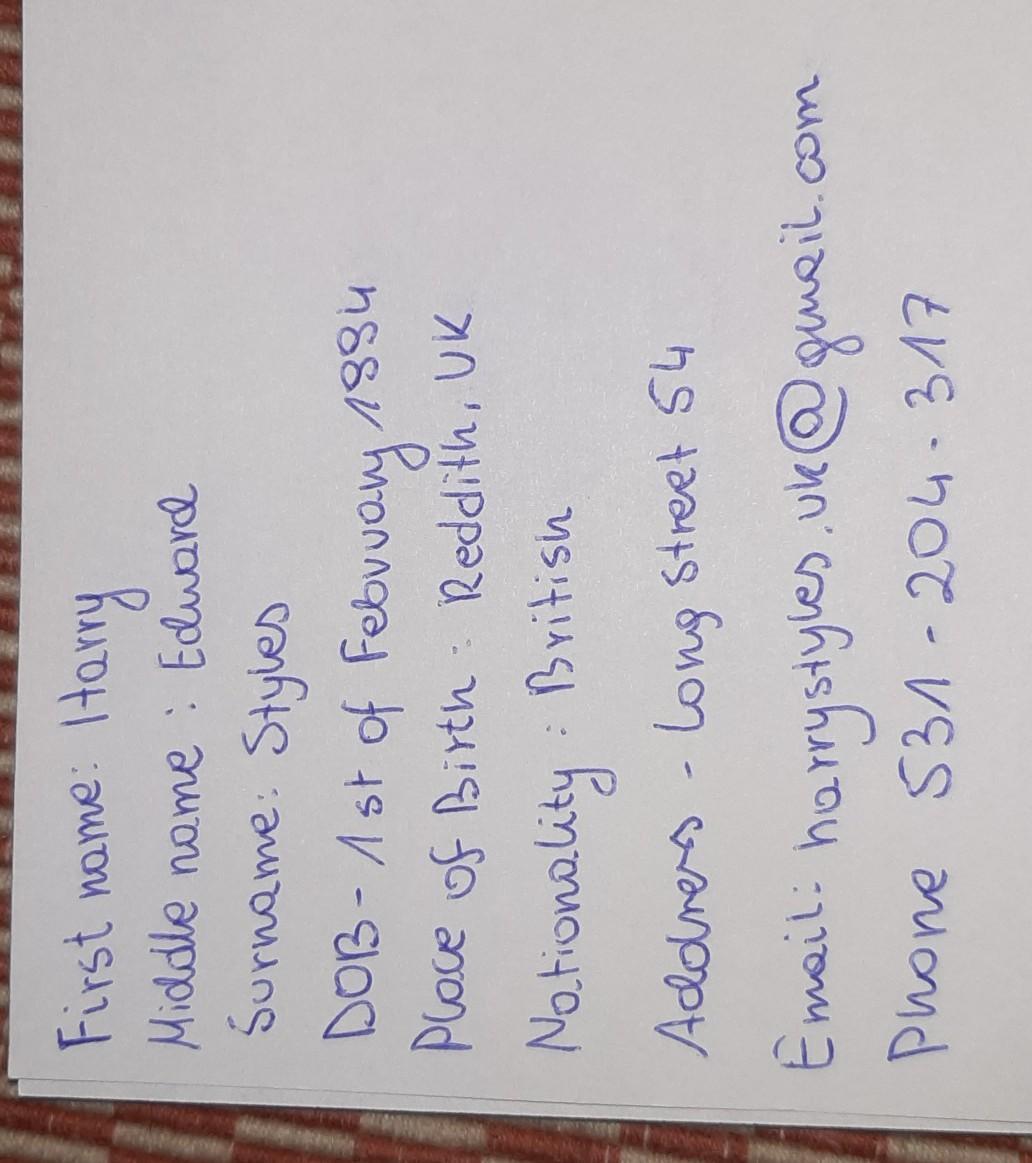 First name: Harry
Middle name: Edward
Surname: Styles
DOB - 1st of February 1994
Place of Birth: Reddith, UK
Nationality: British
Address - Long Street 54
Email: harrystyles.uk@gmail.com
Phone 531-204-317